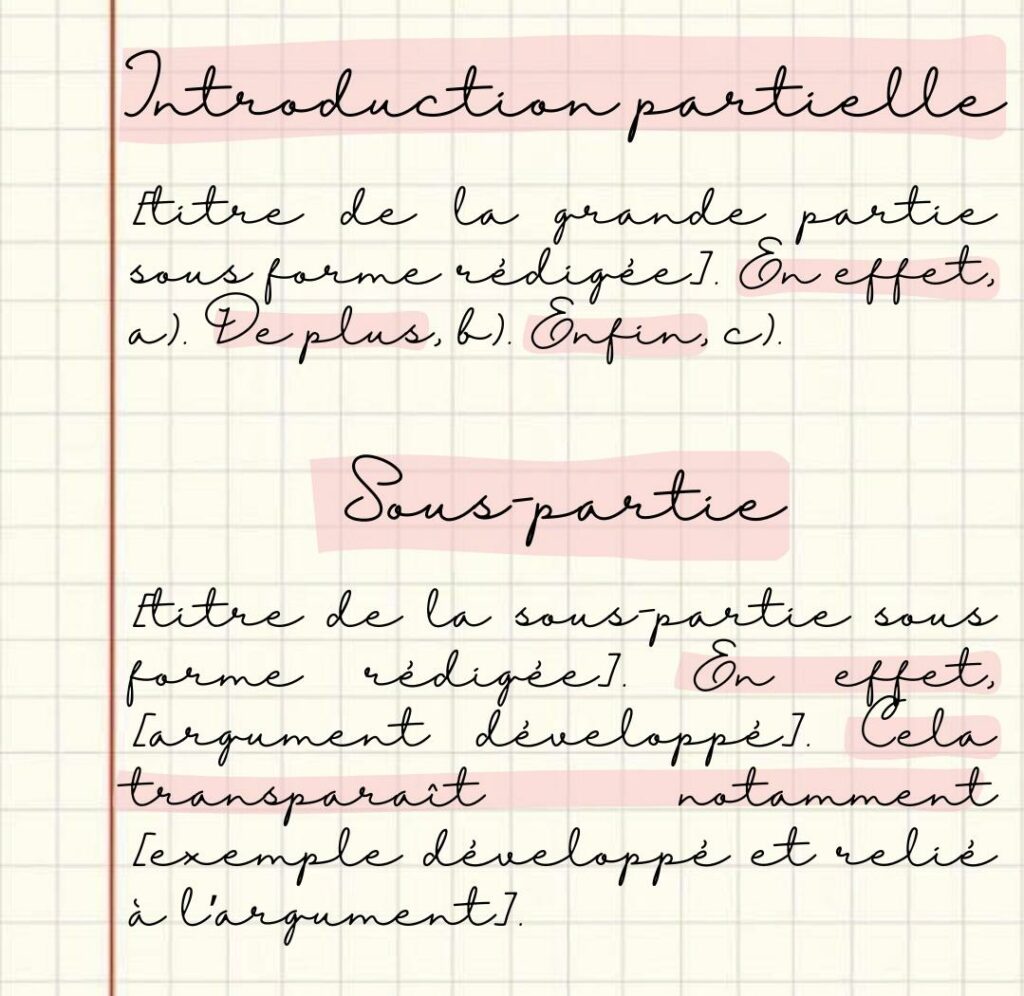 Introduction partielle
[titre de la grande partie
sous forme rédigée]. En effet,
a). De plus, b). Enfin, c).
Sous-partie
[titre de la sous-partie sous
forme rédigée]. En effet,
[argument développé]. Cela
transparaît notamment
[exemple développé et relié
à l'argument].